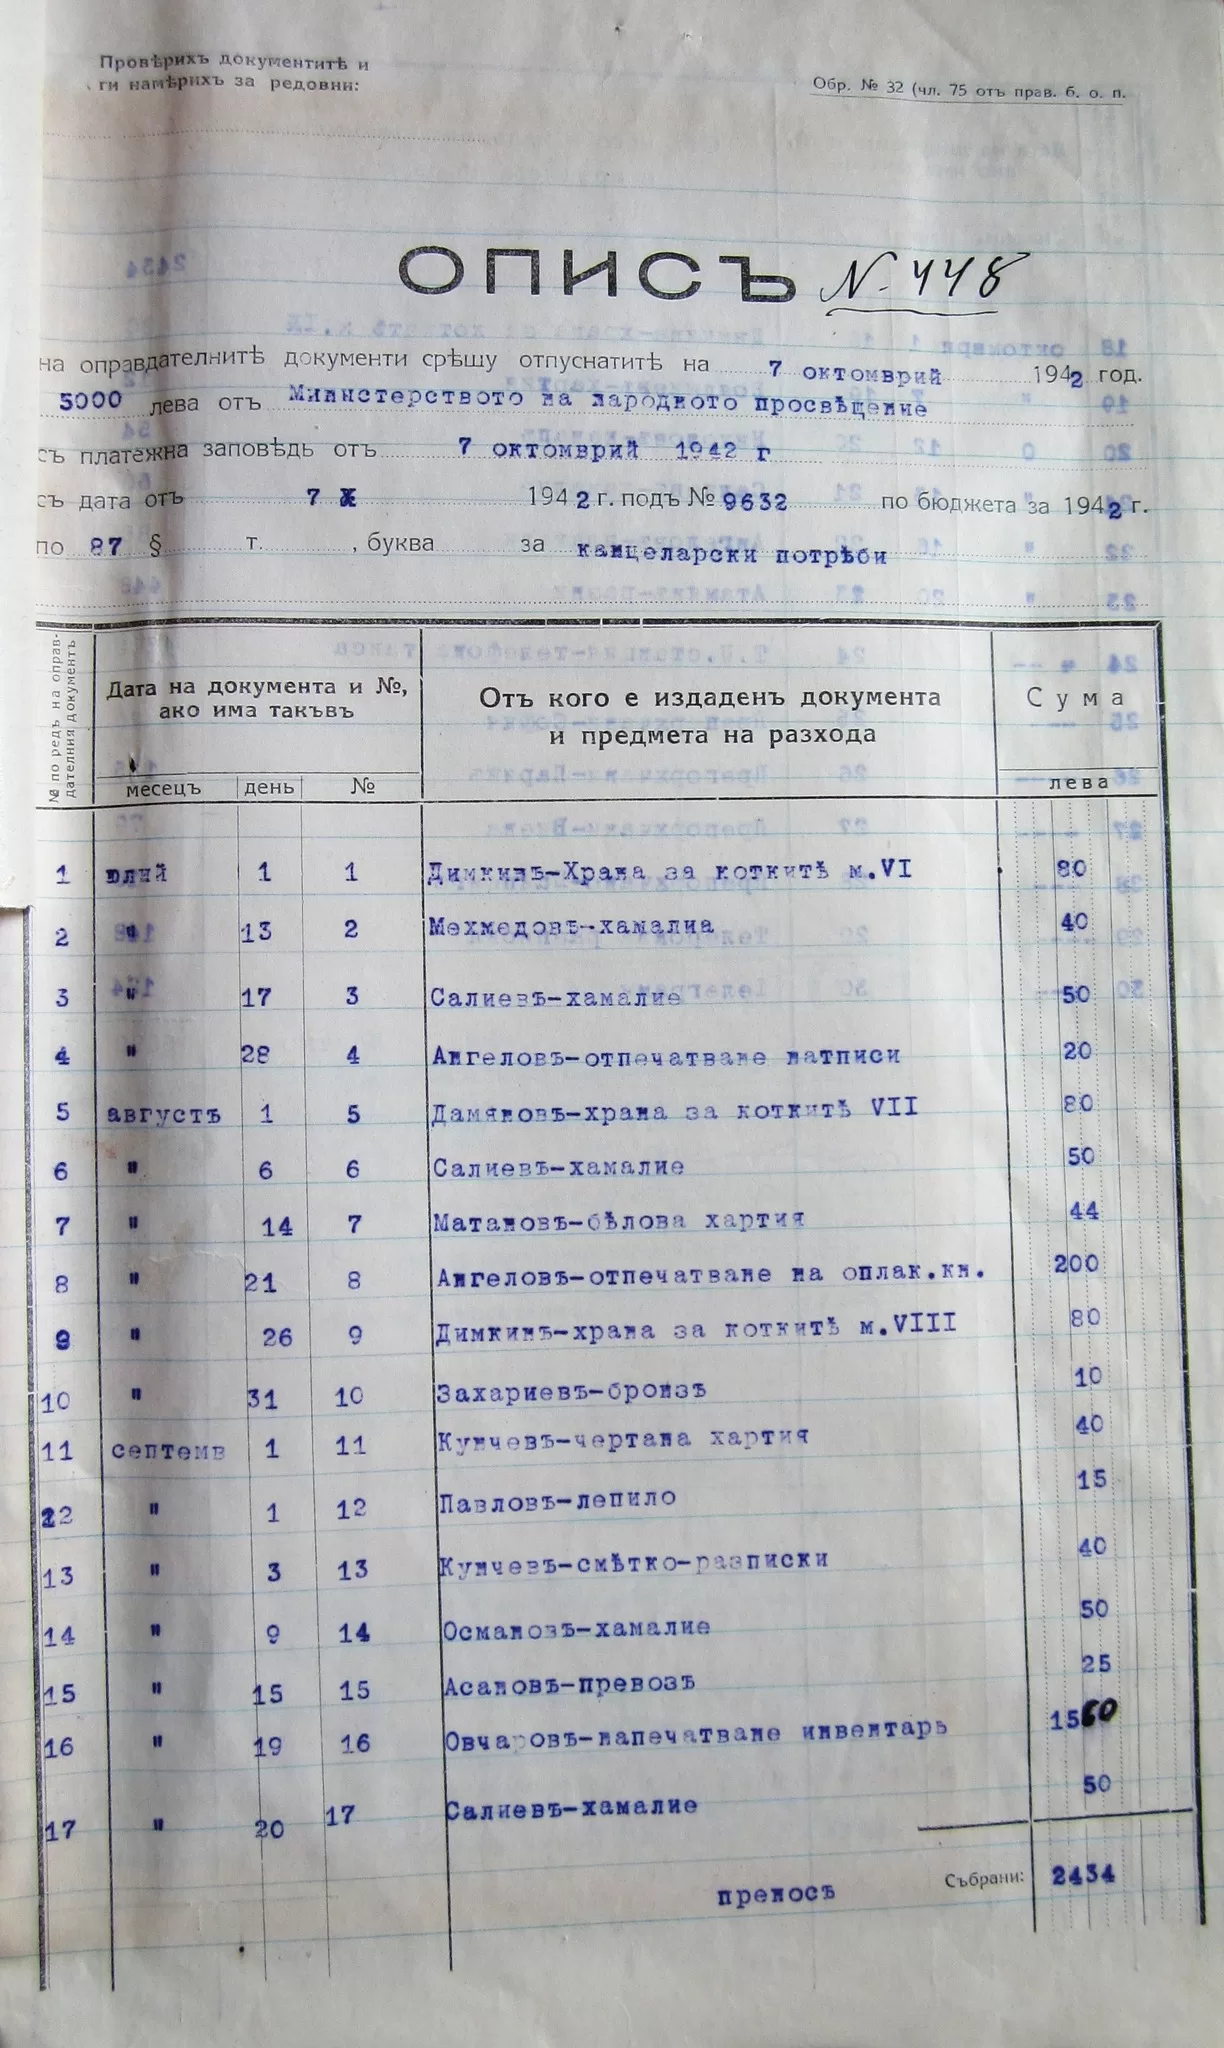 Провѣрихъ документитѣ и
ги намѣрихъ за редовни:
Обр. № 32 (чл. 75 отъ прав. б. о. п.
ОПИСЪ N. 448
на оправдателнитѣ документи срѣщу отпуснатитѣ на 7 октомврий 1942 год.
5000 лева отъ Министерството на народното просвѣщение
съ платежна заповѣдь отъ 7 октомврий 1942 г
съ дата отъ 7 X 1942 г. подъ № 9632 по бюджета за 1942 г.
по 87 § т. , буква за канцеларски потрѣби
№ по редъ на оправ-
дателния документъ
Дата на документа и №,
ако има такъвъ
Отъ кого е издаденъ документа
и предмета на разхода
Сума
месецъ день № лева
1 юлий 1 1 Димкинъ-Храна за коткитѣ м.VI 80
2 " 13 2 Мехмедовъ-хамалиа 40
3 " 17 3 Салиевъ-хамалие 50
4 " 28 4 Ангеловъ-отпечатване натписи 20
5 августъ 1 5 Дамяновъ-храна за коткитѣ VII 80
6 " 6 6 Салиевъ-хамалие 50
7 " 14 7 Матановъ-бѣлова хартия 44
8 " 21 8 Ангеловъ-отпечатване на оплак.кн. 200
9 " 26 9 Димкинъ-храна за коткитѣ м.VIII 80
10 " 31 10 Захариевъ-бронзъ 10
11 септемв 1 11 Кунчевъ-чертана хартия 40
12 " 1 12 Павловъ-лепило 15
13 " 3 13 Кунчевъ-смѣтко-разписки 40
14 " 9 14 Османовъ-хамалие 50
15 " 15 15 Асановъ-превозъ 25
16 " 19 16 Овчаровъ-напечатване инвентарь 1560
17 " 20 17 Салиевъ-хамалие 50
преносъ Събрани: 2434